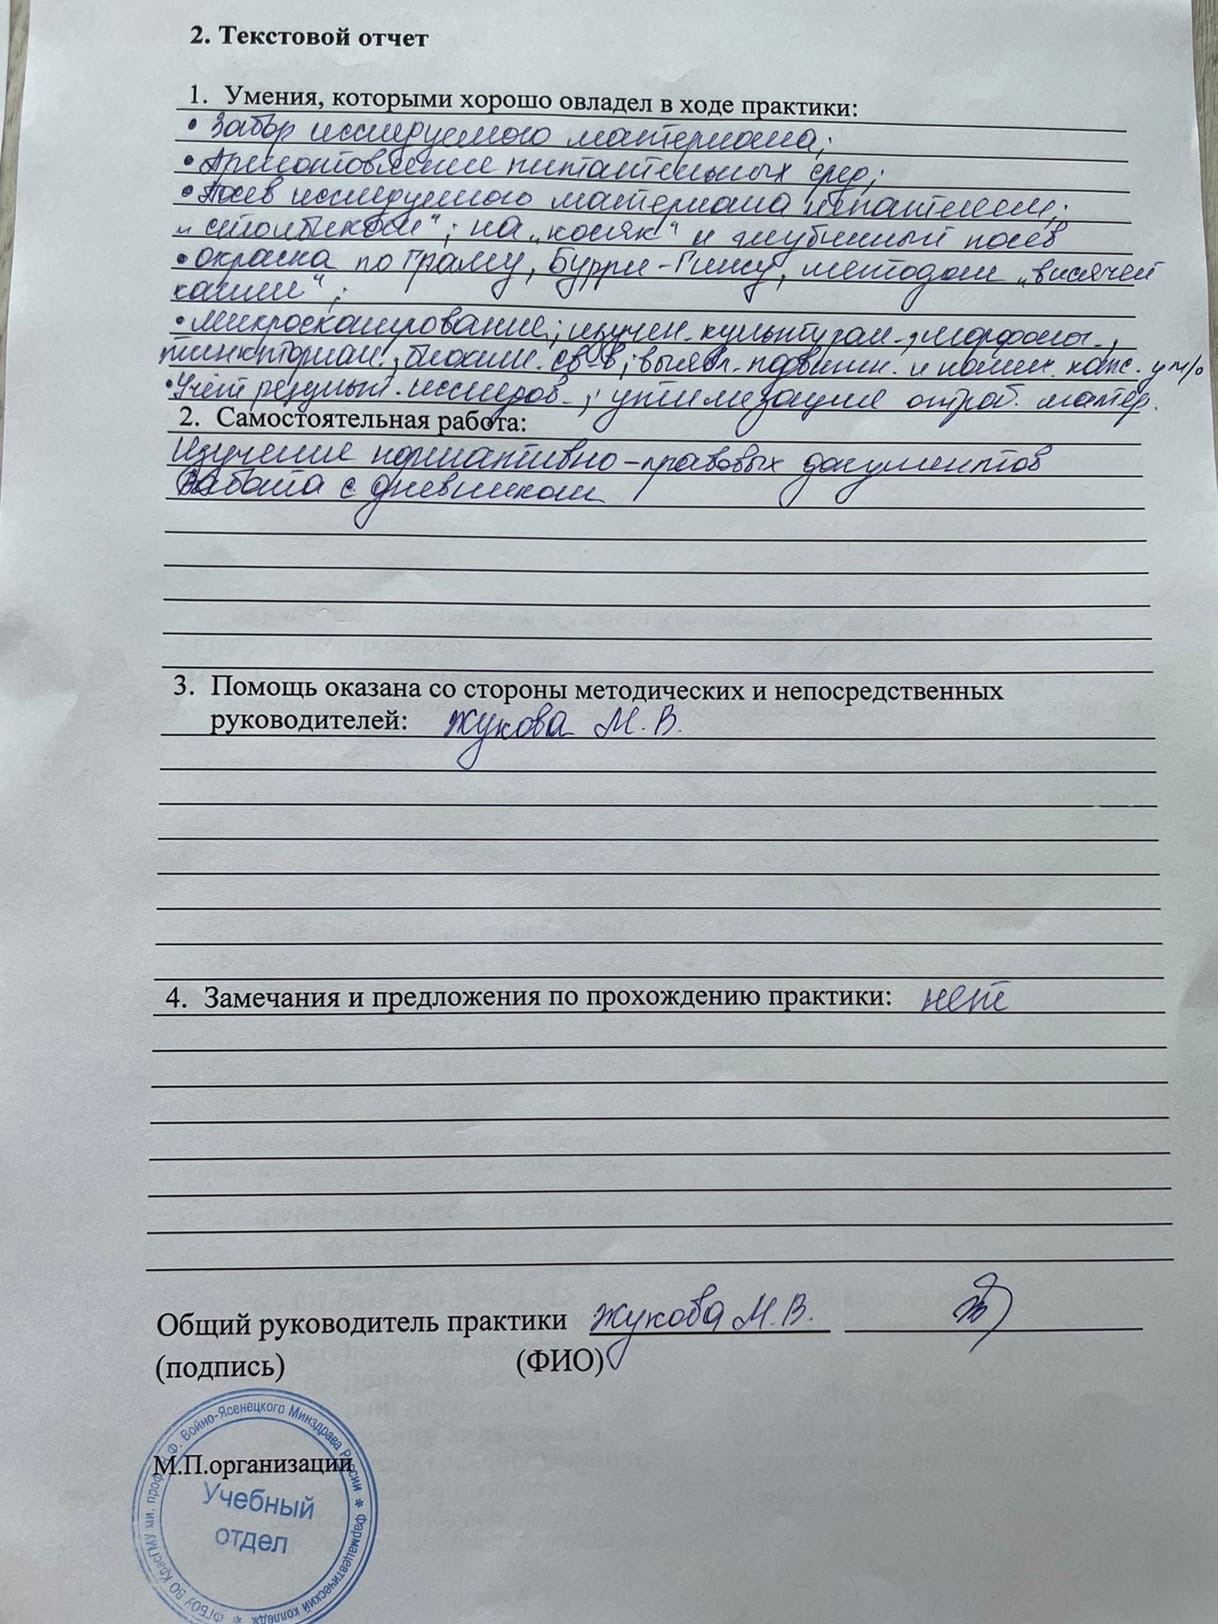 2. Текстовой отчет
1. Умения, которыми хорошо овладел в ходе практики:
• Забор исследуемого материала;
• Приготовление питательных сред;
• Посев исследуемого материала шпателем;
и „столбиком“; на „косяк“ и глубинный посев
• окраска по Граму, Бурри-Гинсу, методом „висячей
капли“;
• микроскопирование; изучен. культурал., морфолог.,
тинкториал., биохим. св-в; выявл. подвижн. и налич. капс. у м/о
• Учёт результ. исследов.; утилизация отраб. матер.
2. Самостоятельная работа:
Изучение нормативно-правовых документов
Работа с дневником
3. Помощь оказана со стороны методических и непосредственных
руководителей: Жукова М.В.
4. Замечания и предложения по прохождению практики: нет
Общий руководитель практики Жукова М.В.
(подпись) (ФИО)
М.П.организации
Учебный
отдел
ФГБОУ ВО КрасГМУ им. проф. В.Ф. Войно-Ясенецкого Минздрава России * Фармацевтический колледж *